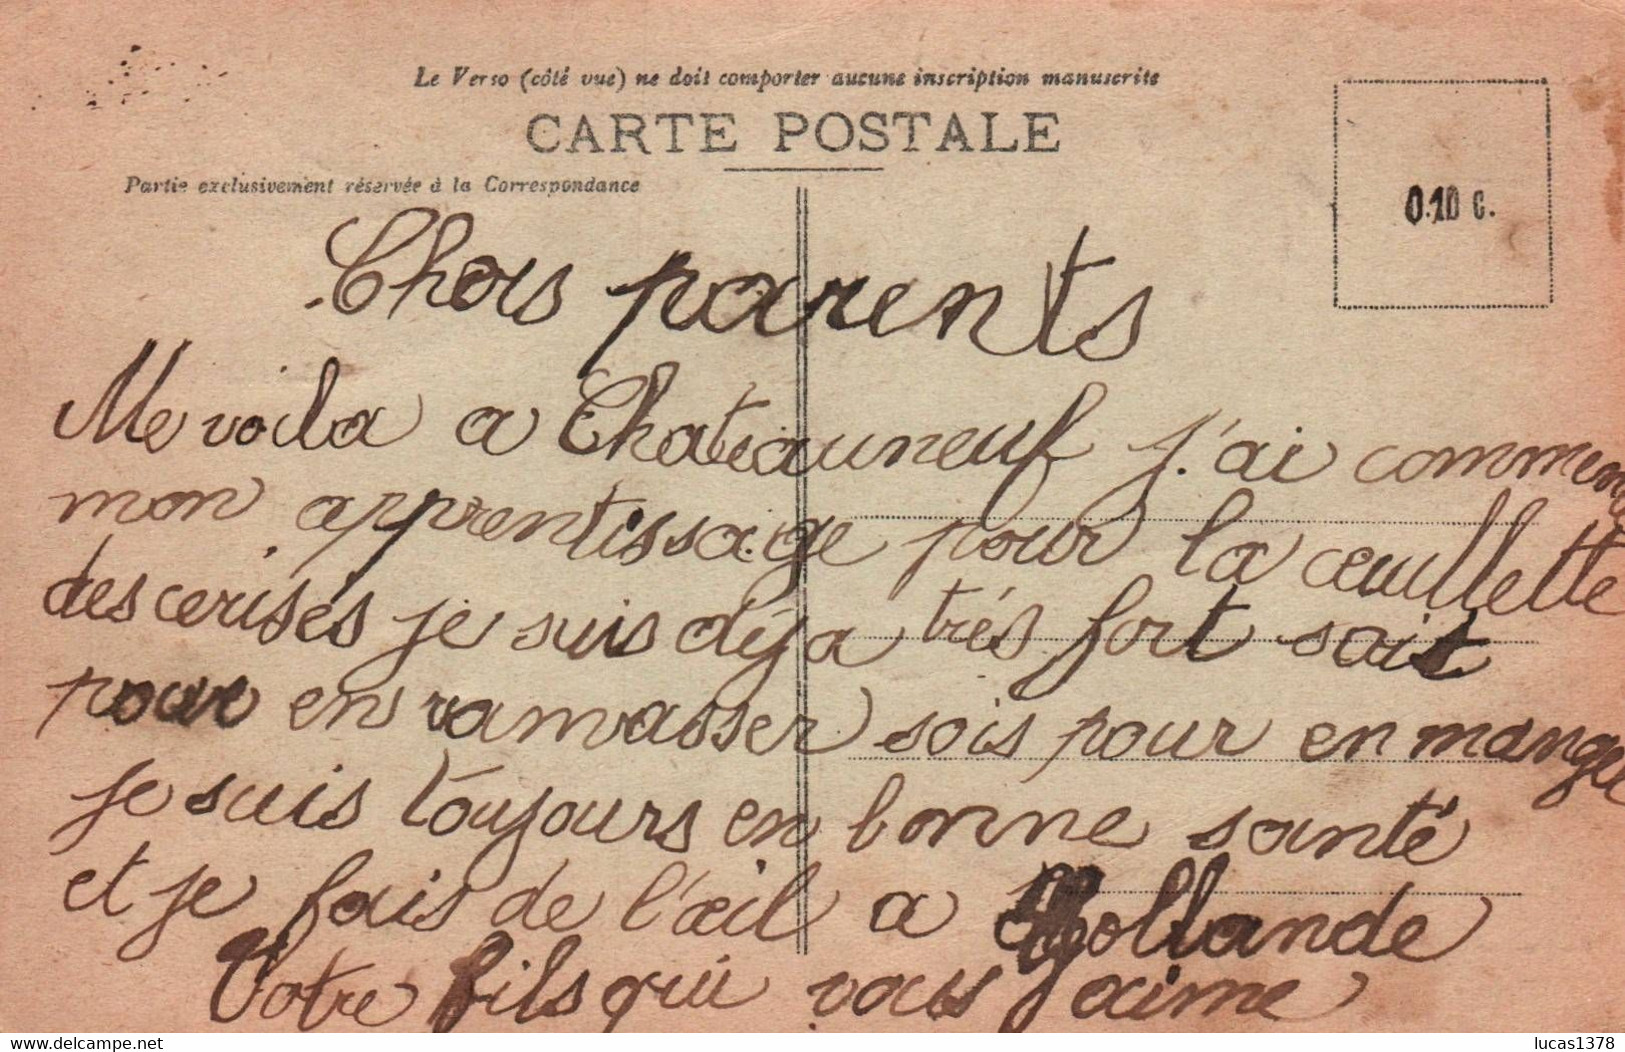 Le Verso (côté vue) ne doit comporter aucune inscription manuscrite
CARTE POSTALE
Partie exclusivement réservée à la Correspondance
0.10 c.
Chers parents
Me voila a Chateauneuf j'ai commenc
mon apprentissage pour la ceuillette
des cerises je suis déja trés fort soit
pour en ramasser sois pour en manger
je suis toujours en bonne santé
et je fais de l'œil a Hollande
Votre fils qui vous aime
www.delcampe.net
lucas1378